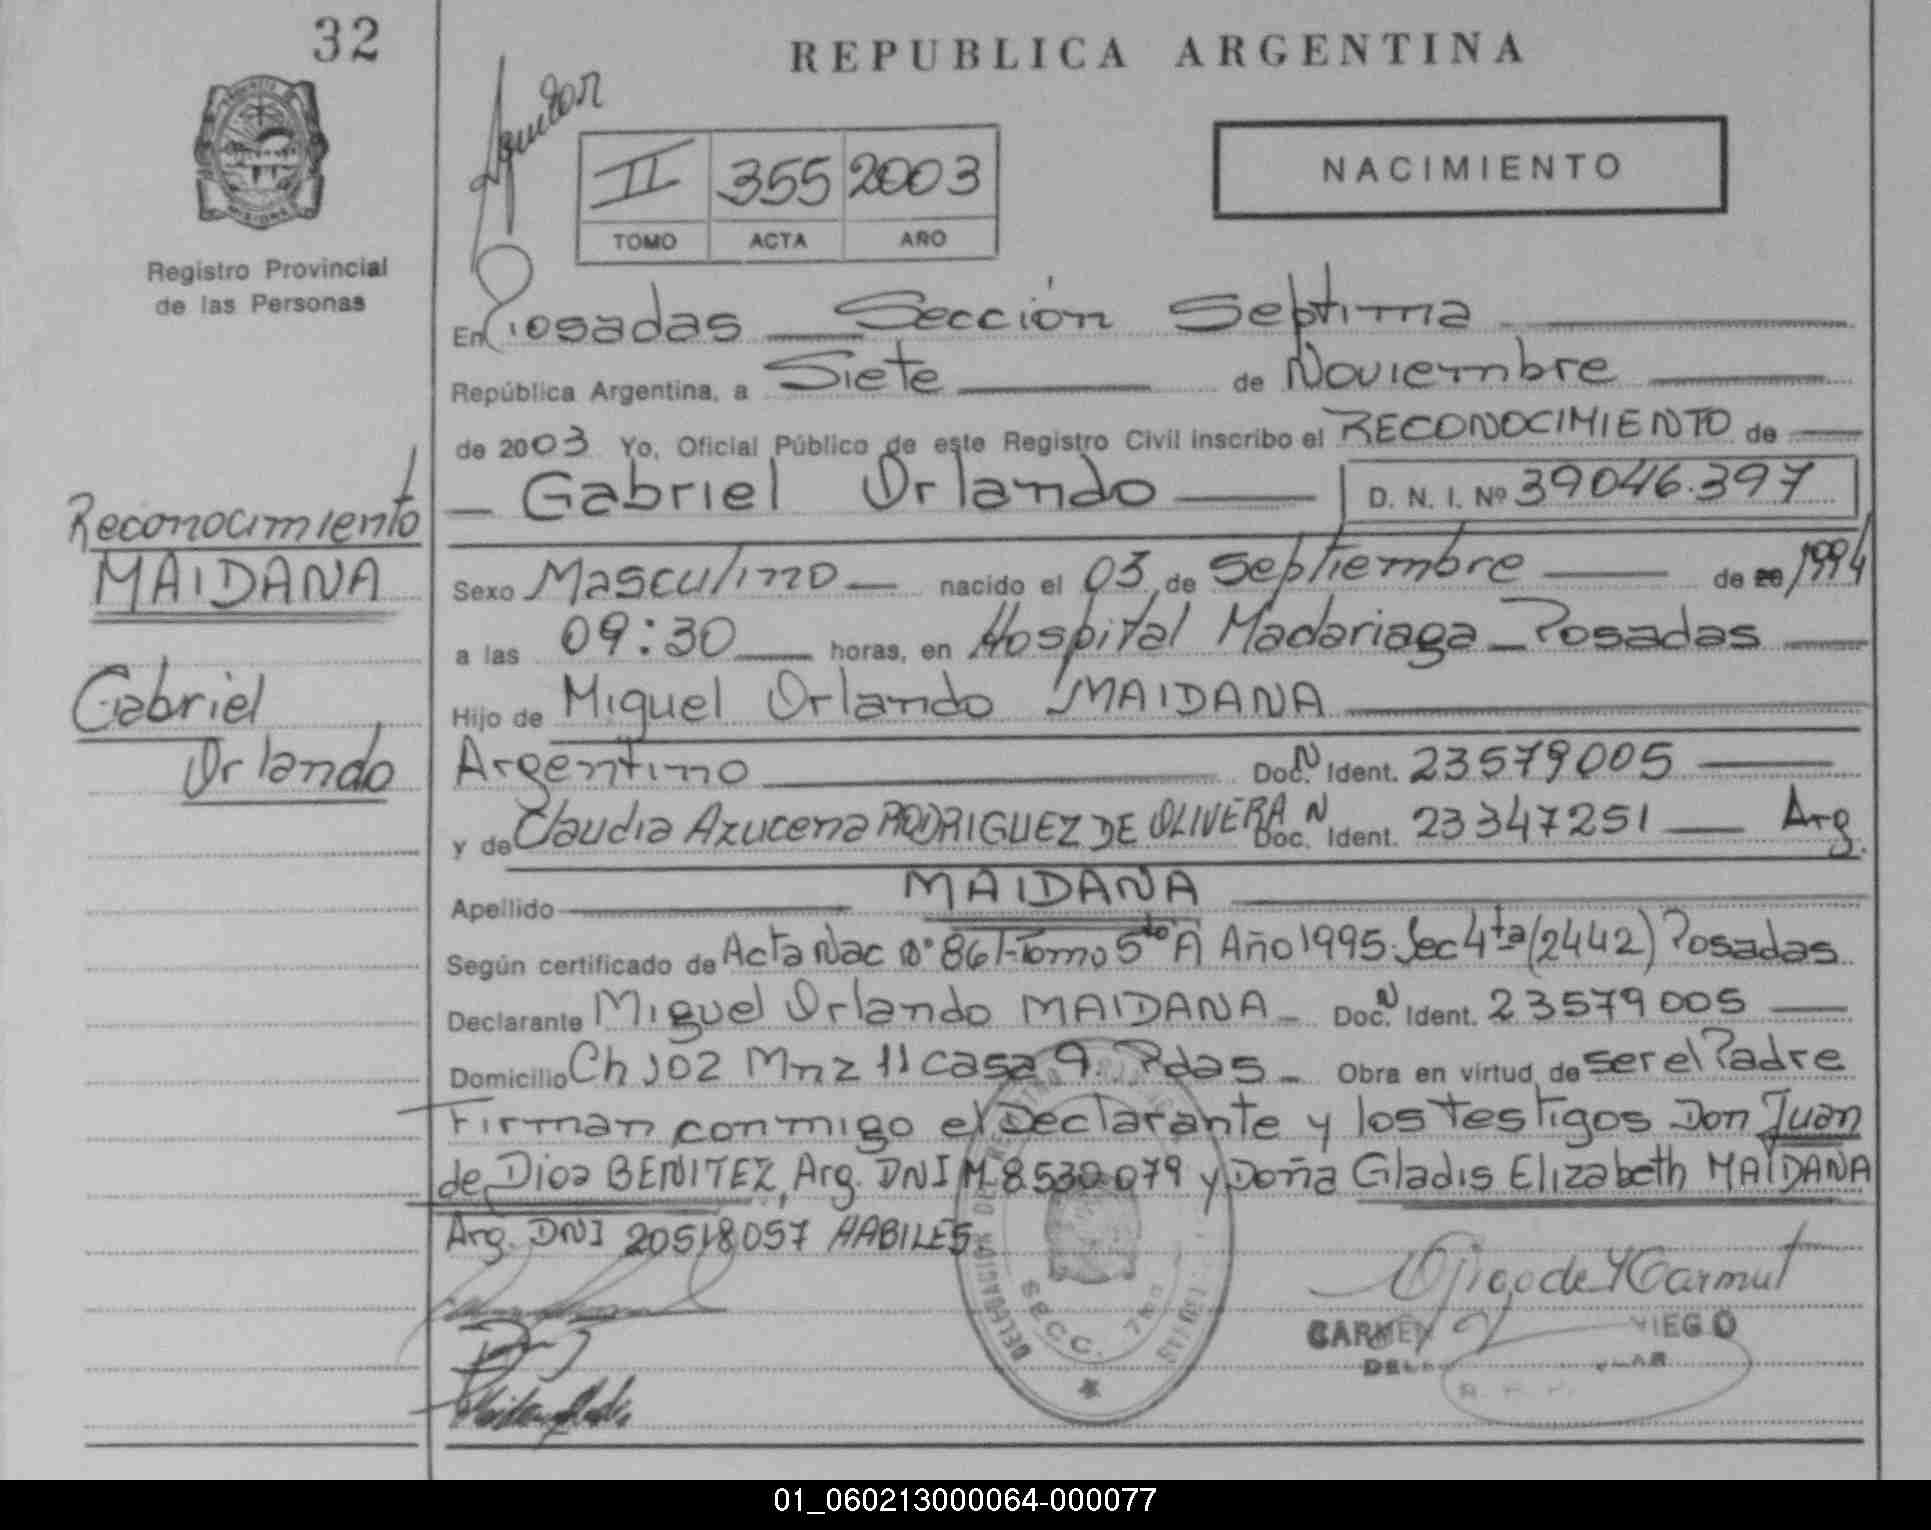 32
REPUBLICA ARGENTINA
Aguilar
II 355 2003
TOMO ACTA AÑO
NACIMIENTO
Registro Provincial
de las Personas
En Posadas Sección Septima
República Argentina, a Siete de Noviembre
de 2003 Yo, Oficial Público de este Registro Civil inscribo el RECONOCIMIENTO de
Gabriel Orlando D. N. I. Nº 39046.397
Reconocimiento
MAIDANA
Gabriel
Orlando
Sexo Masculino nacido el 03 de Septiembre de 20 1994
a las 09:30 horas, en Hospital Madariaga - Posadas
Hijo de Miguel Orlando MAIDANA
Argentino Doc. N Ident. 23579005
y de Claudia Azucena RODRIGUEZ DE OLIVERA Doc. N Ident. 23347251 Arg.
Apellido MAIDANA
Según certificado de Acta Nac Nº 861-Tomo 5to A Año 1995. Sec 4ta (2442) Posadas
Declarante Miguel Orlando MAIDANA - Doc. N Ident. 23579005
Domicilio Ch 102 Mnz 11 casa 9 Pdas - Obra en virtud de ser el Padre
Firman conmigo el Declarante y los testigos Don Juan
de Dios BENITEZ, Arg. DNI M-8.530.079 y Doña Gladis Elizabeth MAIDANA
Arg. DNI 20518057 HABILES
SECC. 7ma
CARMEN VIEGO
01_060213000064-000077